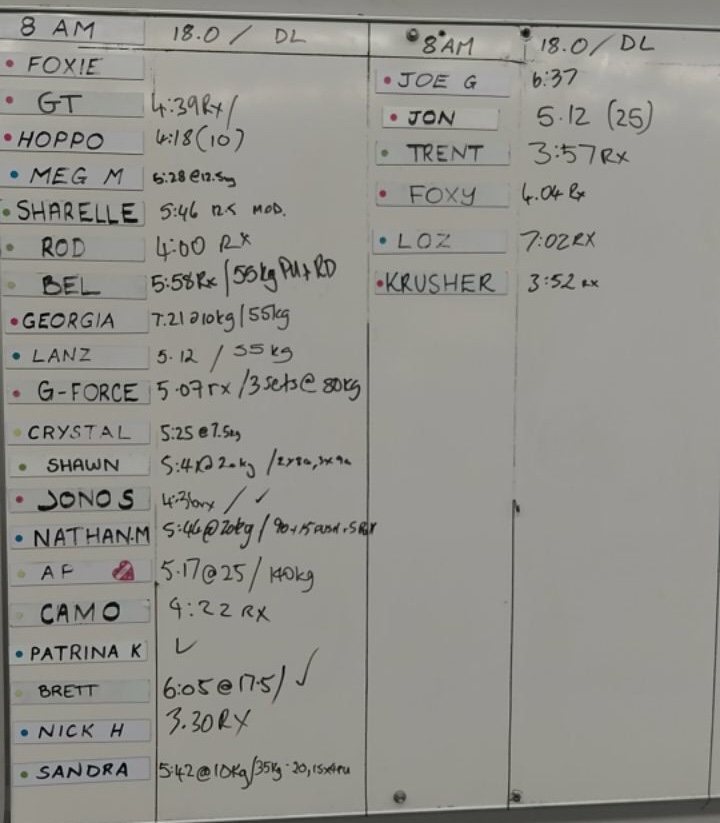 8 AM 18.0 / DL
FOXIE
GT 4:39 Rx /
HOPPO 4:18 (10)
MEG M 5:28 @ 12.5kg
SHARELLE 5:46 12.5 MOD.
ROD 4:00 RX
BEL 5:58 Rx / 55kg PU + RD
GEORGIA 7.21 @ 10kg / 55kg
LANZ 5.12 / 55 kg
G-FORCE 5.07 rx / 3 sets @ 80kg
CRYSTAL 5:25 @ 7.5kg
SHAWN 20kg /
JONO S / ✓
NATHAN.M 5:46 @ 20kg /
AP 5.17 @ 25 / 140kg
CAMO 4:22 RX
PATRINA K ✓
BRETT 6:05 @ 17.5 / ✓
NICK H 3.30 RX
SANDRA 5:42 @ 10kg / 35kg - 20, 15
8 AM 18.0 / DL
JOE G 6:37
JON 5.12 (25)
TRENT 3:57 RX
FOXY 4.04 Rx
LOZ 7:02 RX
KRUSHER 3:52 RX